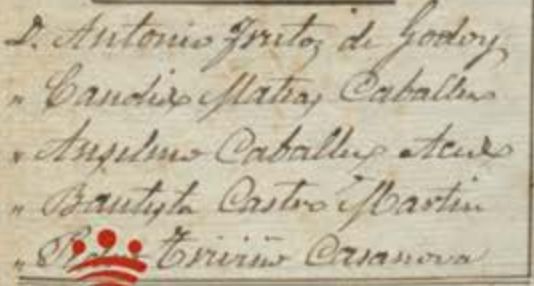 D. Antonio Frutos de Godoy
" Candido Matias Caballero
" Anselmo Caballero
" Bautista Castro Martin
" Triviño Casanova